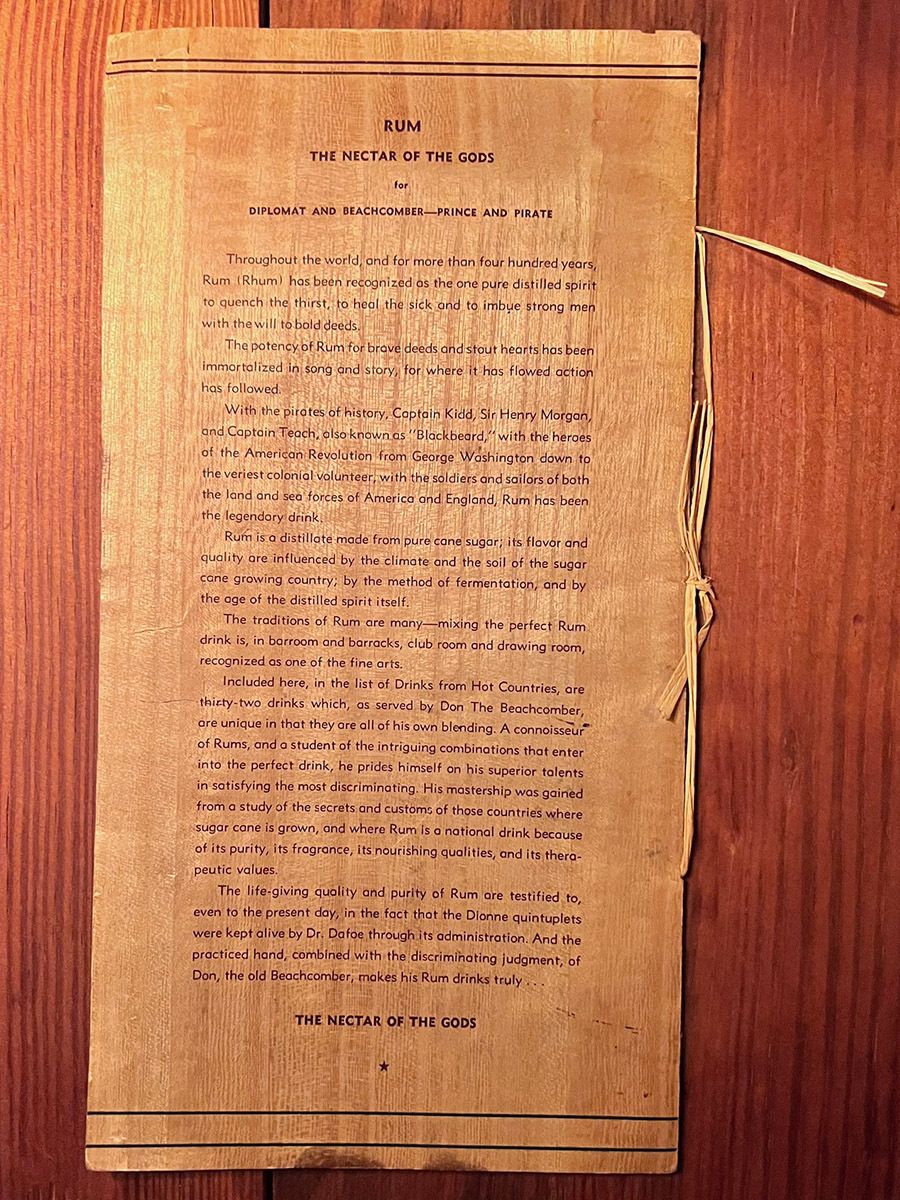 RUM
THE NECTAR OF THE GODS
for
DIPLOMAT AND BEACHCOMBER—PRINCE AND PIRATE
Throughout the world, and for more than four hundred years,
Rum (Rhum) has been recognized as the one pure distilled spirit
to quench the thirst, to heal the sick and to imbue strong men
with the will to bold deeds.
The potency of Rum for brave deeds and stout hearts has been
immortalized in song and story, for where it has flowed action
has followed.
With the pirates of history, Captain Kidd, Sir Henry Morgan,
and Captain Teach, also known as "Blackbeard," with the heroes
of the American Revolution from George Washington down to
the veriest colonial volunteer, with the soldiers and sailors of both
the land and sea forces of America and England, Rum has been
the legendary drink.
Rum is a distillate made from pure cane sugar; its flavor and
quality are influenced by the climate and the soil of the sugar
cane growing country; by the method of fermentation, and by
the age of the distilled spirit itself.
The traditions of Rum are many—mixing the perfect Rum
drink is, in barroom and barracks, club room and drawing room,
recognized as one of the fine arts.
Included here, in the list of Drinks from Hot Countries, are
thirty-two drinks which, as served by Don The Beachcomber,
are unique in that they are all of his own blending. A connoisseur
of Rums, and a student of the intriguing combinations that enter
into the perfect drink, he prides himself on his superior talents
in satisfying the most discriminating. His mastership was gained
from a study of the secrets and customs of those countries where
sugar cane is grown, and where Rum is a national drink because
of its purity, its fragrance, its nourishing qualities, and its thera-
peutic values.
The life-giving quality and purity of Rum are testified to,
even to the present day, in the fact that the Dionne quintuplets
were kept alive by Dr. Dafoe through its administration. And the
practiced hand, combined with the discriminating judgment, of
Don, the old Beachcomber, makes his Rum drinks truly . . .
THE NECTAR OF THE GODS